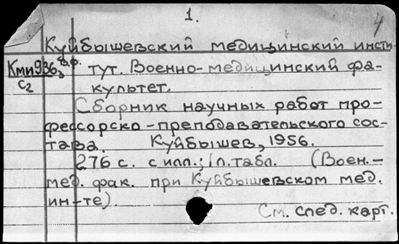 1.
4
Куйбышевский медицинский инсти-
Кми936з тут. Военно-медицинский фа-
С2 культет.
Сборник научных работ про-
фессорско-преподавательского сос-
тава. Куйбышев, 1956.
276 с. с илл.; 1 л. табл. (Воен.-
мед. фак. при Куйбышевском мед.
ин-те).
См. след. карт.